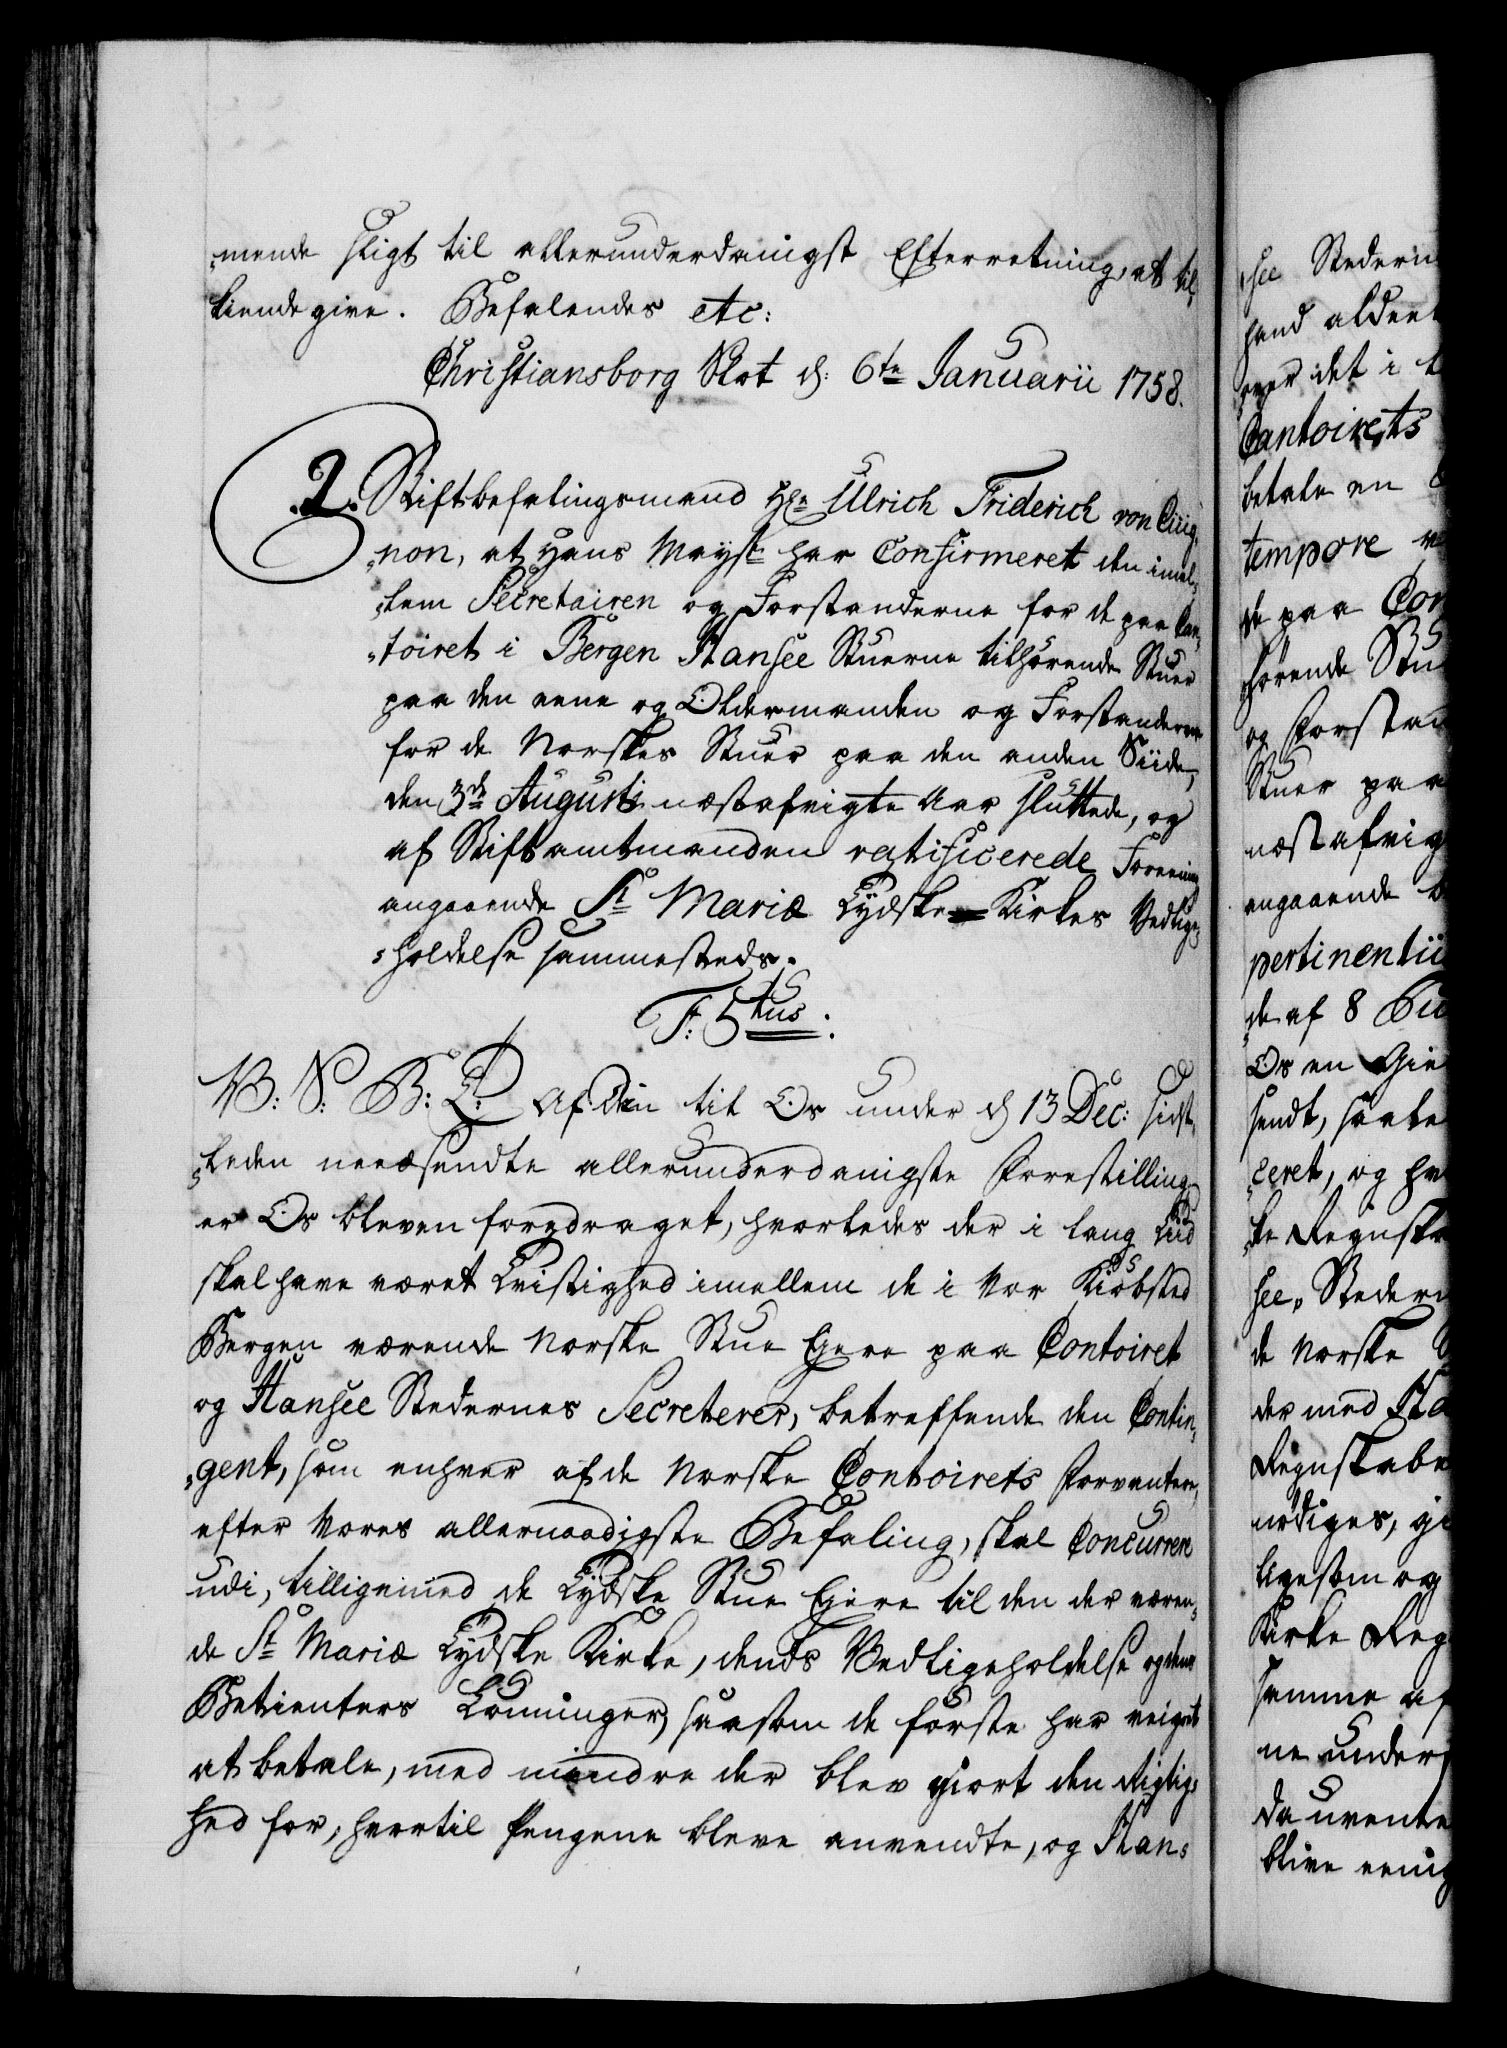 mende sligt til allerunderdanigst Efterretning, at til¬
kiende give. Befalendes etc:
Christiansborg Slot d: 6te Januarii 1758.
2. Stiftbefalingsmand Hr Ulrich Friderich von Cüig¬
non, at Hans Mayst: har Confirmeret den imel¬
lem Secretairen og Forstanderne for de paa Con¬
toiret i Bergen Hansee Stæderne tilhørende Stuer
paa den eene og Oldermanden og Forstanderne
for de Norskes Stuer paa den anden Siide,
den 3de Augusti næstafvigte Aar sluttede, og
af Stiftamtmanden ratificerede Foreening
angaaende St Mariæ Tydske Kirkes Vedlige¬
holdelse sammesteds.
F: 5tus:
V: S: B: T: Af Din til Os under d 13 Dec: sidst¬
leden needsendte allerunderdanigste Forestilling
er Os bleven foredraget, hvorledes der i lang Tiid
skal have været Tvistighed imellem de i Vor Kiøbsted
Bergen værende Norske Stue Eyere paa Contoiret
og Hansee Stædernes Secreterer, betreffende den Contin¬
gent, som enhver af de Norske Contoirets Forvantere,
efter Vores allernaadigste Befaling, skal Concurrere
udi, tilligemed de Tydske Stue Eyere til den der væren¬
de St Mariæ Tydske Kirke, dends Vedligeholdelse og dens
Betienters Lønninger, saasom de første har veigret
at betale, med mindre der blev giort den Rigtig¬
hed for, hvortil Pengene bleve anvendte, og Han¬
see Stedern
hand aldeel
over det i
Contoirets
betale en
tempore
de paa Con
hørende Stu
og Forstan
Stuer paa
næstafvig
angaaende
pertinentii
de af 8
Os en Gie
sendt, saale
ceret, og hv
ke Regnska
see Stedern
de Norske
der med Ha
Regnskabe
nødiges, gi
ligesom og
Kirke Reg
samme af
ne under
da uvente
blive eenig